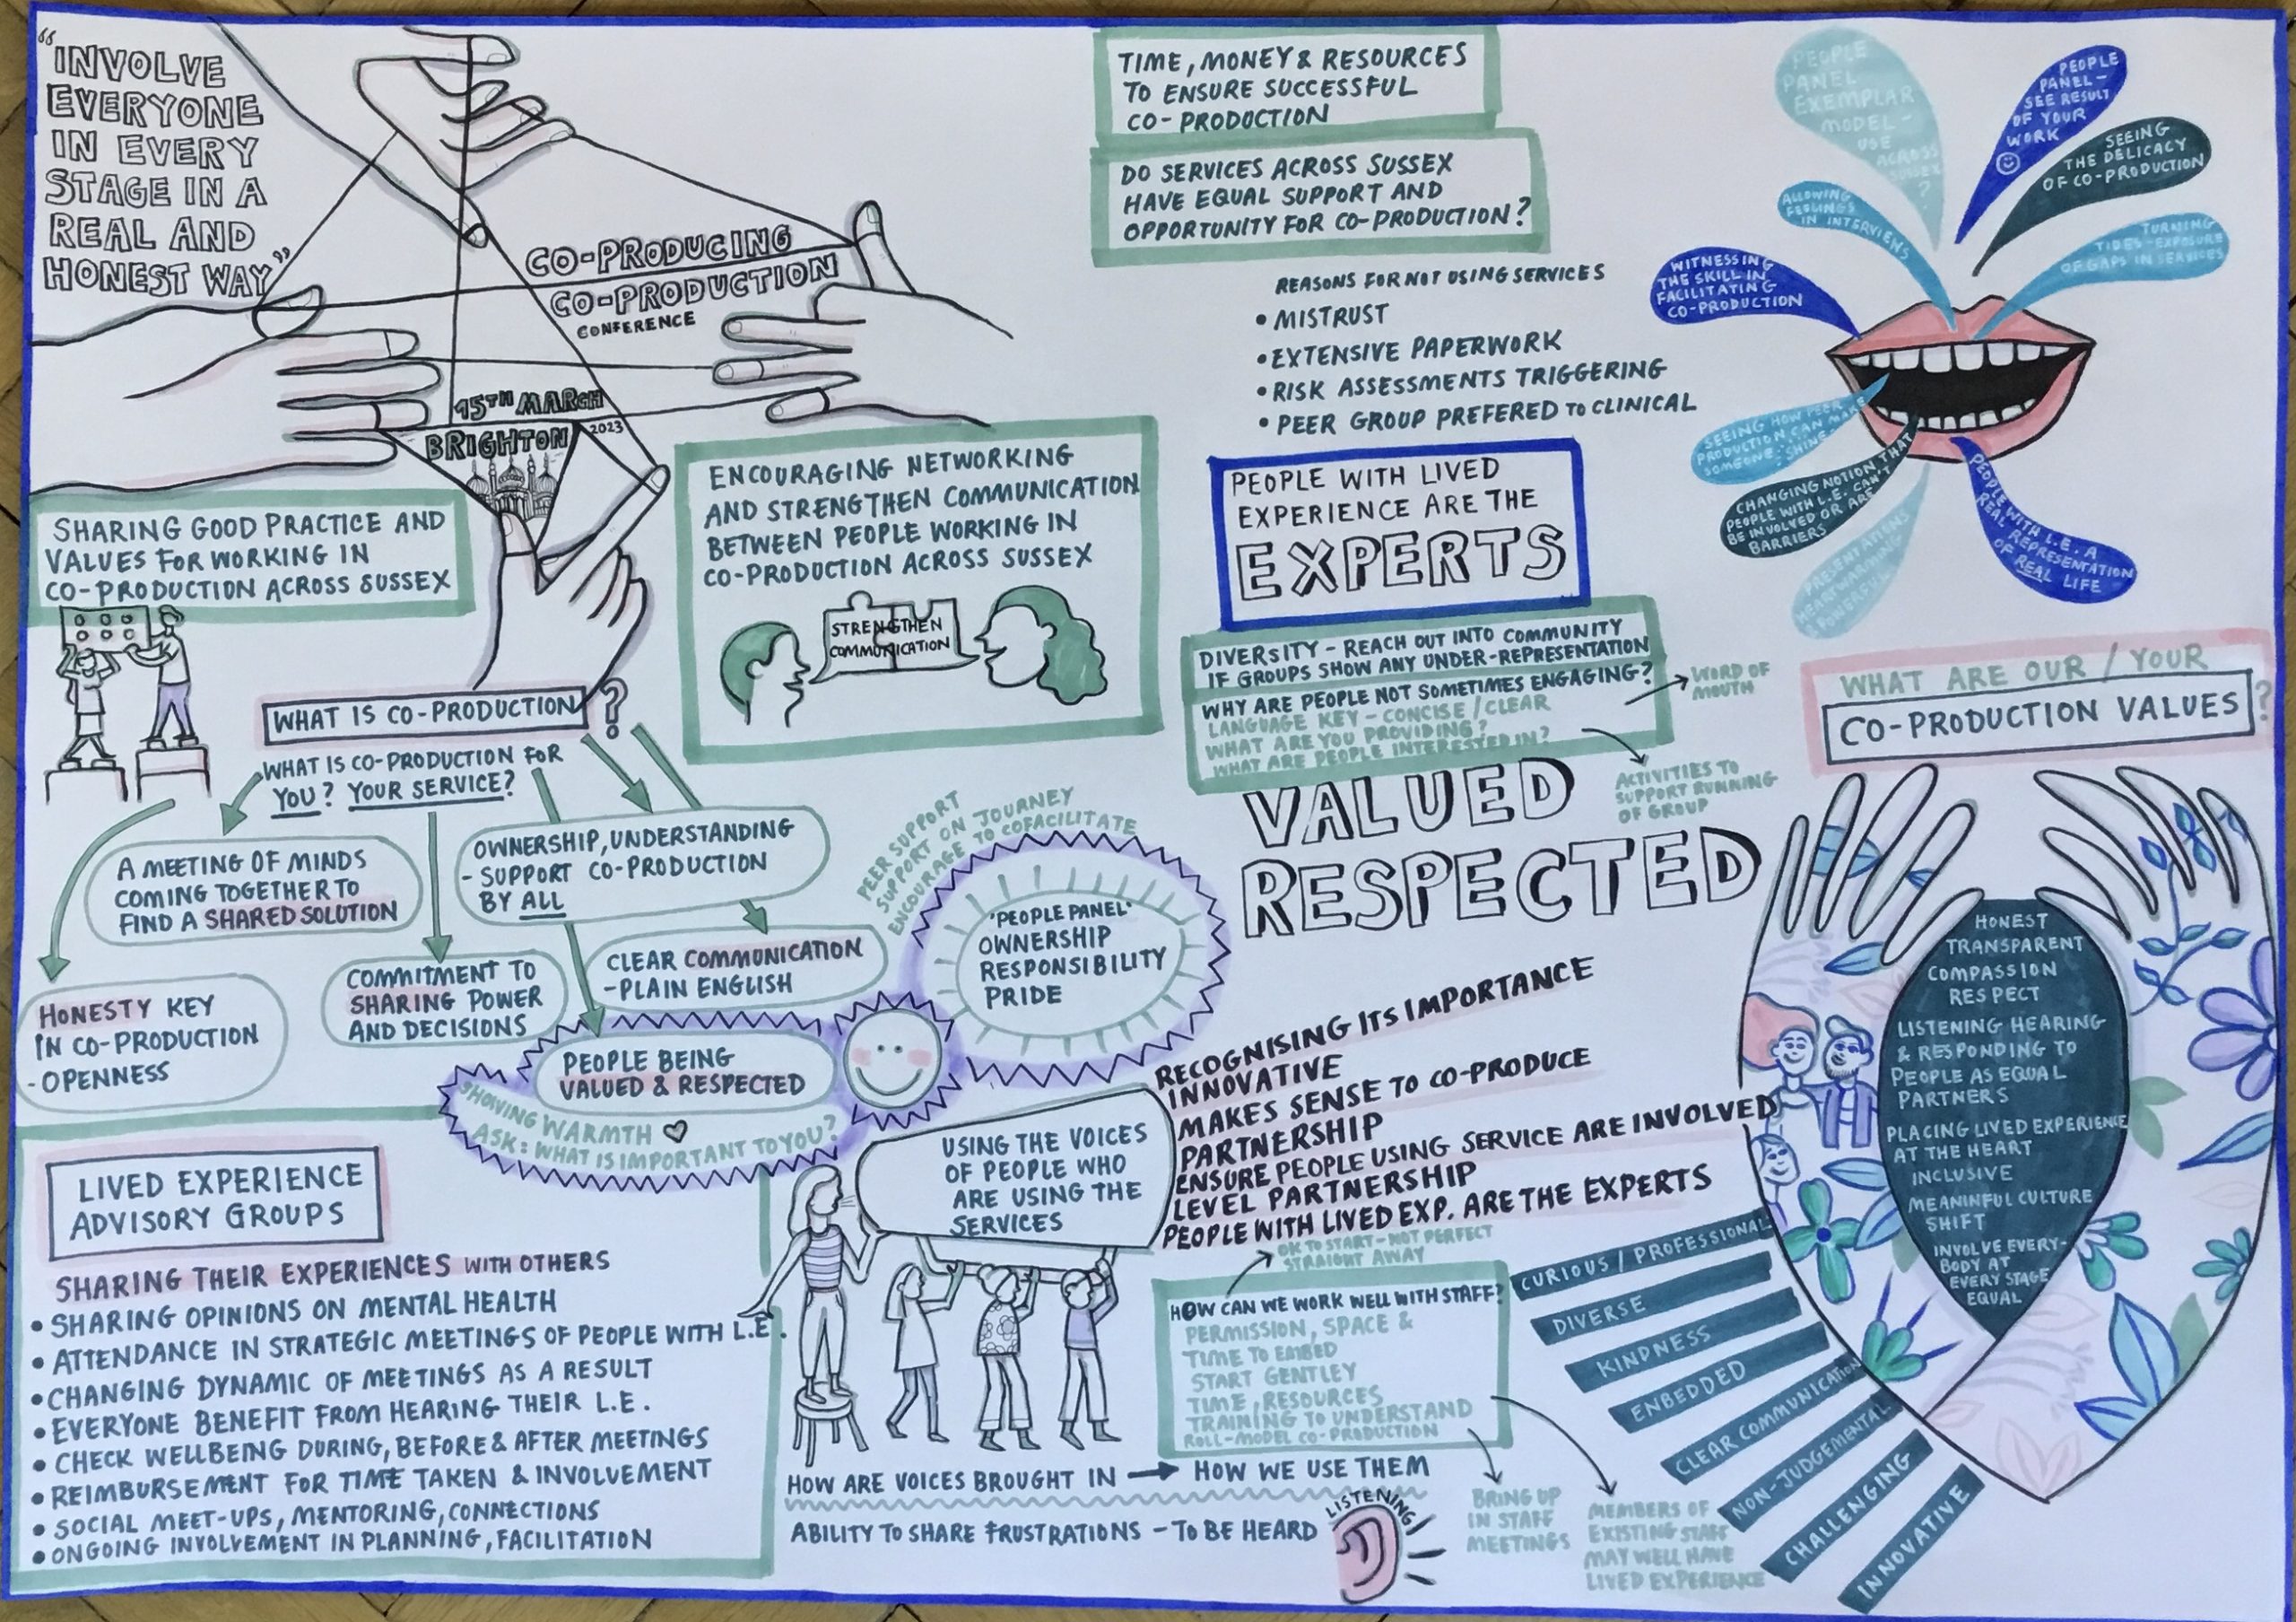 "INVOLVE
EVERYONE
IN EVERY
STAGE IN A
REAL AND
HONEST WAY"
CO-PRODUCING
CO-PRODUCTION
CONFERENCE
15TH MARCH
2023
BRIGHTON
SHARING GOOD PRACTICE AND
VALUES FOR WORKING IN
CO-PRODUCTION ACROSS SUSSEX
ENCOURAGING NETWORKING
AND STRENGTHEN COMMUNICATION
BETWEEN PEOPLE WORKING IN
CO-PRODUCTION ACROSS SUSSEX
STRENGTHEN
COMMUNICATION
TIME, MONEY & RESOURCES
TO ENSURE SUCCESSFUL
CO-PRODUCTION
DO SERVICES ACROSS SUSSEX
HAVE EQUAL SUPPORT AND
OPPORTUNITY FOR CO-PRODUCTION?
REASONS FOR NOT USING SERVICES
• MISTRUST
• EXTENSIVE PAPERWORK
• RISK ASSESSMENTS TRIGGERING
• PEER GROUP PREFERED TO CLINICAL
PEOPLE WITH LIVED
EXPERIENCE ARE THE
EXPERTS
DIVERSITY - REACH OUT INTO COMMUNITY
IF GROUPS SHOW ANY UNDER-REPRESENTATION
WHY ARE PEOPLE NOT SOMETIMES ENGAGING?
LANGUAGE KEY - CONCISE / CLEAR
WHAT ARE YOU PROVIDING?
WHAT ARE PEOPLE INTERESTED IN?
WORD OF
MOUTH
ACTIVITIES TO
SUPPORT RUNNING
OF GROUP
PEOPLE
PANEL
EXEMPLAR
MODEL -
USE
ACROSS
SUSSEX
?
PEOPLE
PANEL -
SEE RESULT
OF YOUR
WORK
SEEING
THE DELICACY
OF CO-PRODUCTION
ALLOWING
FEELINGS
IN INTERVIEWS
TURNING
TIDES - EXPOSURE
OF GAPS IN SERVICES
WITNESSING
THE SKILL IN
FACILITATING
CO-PRODUCTION
SEEING HOW PEER
PRODUCTION CAN MAKE
SOMEONE 'SHINE'
CHANGING NOTION THAT
PEOPLE WITH L.E. CAN'T
BE INVOLVED OR ARE
BARRIERS
PRESENTATIONS
HEARTWARMING
& POWERFUL
PEOPLE WITH L.E. A
REAL REPRESENTATION
OF REAL LIFE
WHAT IS CO-PRODUCTION?
WHAT IS CO-PRODUCTION FOR
YOU? YOUR SERVICE?
A MEETING OF MINDS
COMING TOGETHER TO
FIND A SHARED SOLUTION
OWNERSHIP, UNDERSTANDING
- SUPPORT CO-PRODUCTION
BY ALL
HONESTY KEY
IN CO-PRODUCTION
- OPENNESS
COMMITMENT TO
SHARING POWER
AND DECISIONS
CLEAR COMMUNICATION
- PLAIN ENGLISH
PEOPLE BEING
VALUED & RESPECTED
SHOWING WARMTH
ASK: WHAT IS IMPORTANT TO YOU?
PEER SUPPORT
SUPPORT ON JOURNEY
ENCOURAGE TO COFACILITATE
'PEOPLE PANEL'
OWNERSHIP
RESPONSIBILITY
PRIDE
VALUED
RESPECTED
RECOGNISING ITS IMPORTANCE
INNOVATIVE
MAKES SENSE TO CO-PRODUCE
PARTNERSHIP
ENSURE PEOPLE USING SERVICE ARE INVOLVED
LEVEL PARTNERSHIP
PEOPLE WITH LIVED EXP. ARE THE EXPERTS
USING THE VOICES
OF PEOPLE WHO
ARE USING THE
SERVICES
LIVED EXPERIENCE
ADVISORY GROUPS
SHARING THEIR EXPERIENCES WITH OTHERS
• SHARING OPINIONS ON MENTAL HEALTH
• ATTENDANCE IN STRATEGIC MEETINGS OF PEOPLE WITH L.E.
• CHANGING DYNAMIC OF MEETINGS AS A RESULT
• EVERYONE BENEFIT FROM HEARING THEIR L.E.
• CHECK WELLBEING DURING, BEFORE & AFTER MEETINGS
• REIMBURSEMENT FOR TIME TAKEN & INVOLVEMENT
• SOCIAL MEET-UPS, MENTORING, CONNECTIONS
• ONGOING INVOLVEMENT IN PLANNING, FACILITATION
OK TO START - NOT PERFECT
STRAIGHT AWAY
HOW CAN WE WORK WELL WITH STAFF?
PERMISSION, SPACE &
TIME TO EMBED
START GENTLEY
TIME, RESOURCES
TRAINING TO UNDERSTAND
ROLL-MODEL CO-PRODUCTION
BRING UP
IN STAFF
MEETINGS
MEMBERS OF
EXISTING STAFF
MAY WELL HAVE
LIVED EXPERIENCE
HOW ARE VOICES BROUGHT IN → HOW WE USE THEM
ABILITY TO SHARE FRUSTRATIONS - TO BE HEARD
LISTENING
WHAT ARE OUR / YOUR
CO-PRODUCTION VALUES?
HONEST
TRANSPARENT
COMPASSION
RESPECT
LISTENING HEARING
& RESPONDING TO
PEOPLE AS EQUAL
PARTNERS
PLACING LIVED EXPERIENCE
AT THE HEART
INCLUSIVE
MEANINFUL CULTURE
SHIFT
INVOLVE EVERY-
BODY AT
EVERY STAGE
EQUAL
CURIOUS / PROFESSIONAL
DIVERSE
KINDNESS
ENBEDDED
CLEAR COMMUNICATION
NON-JUDGEMENTAL
CHALLENGING
INNOVATIVE